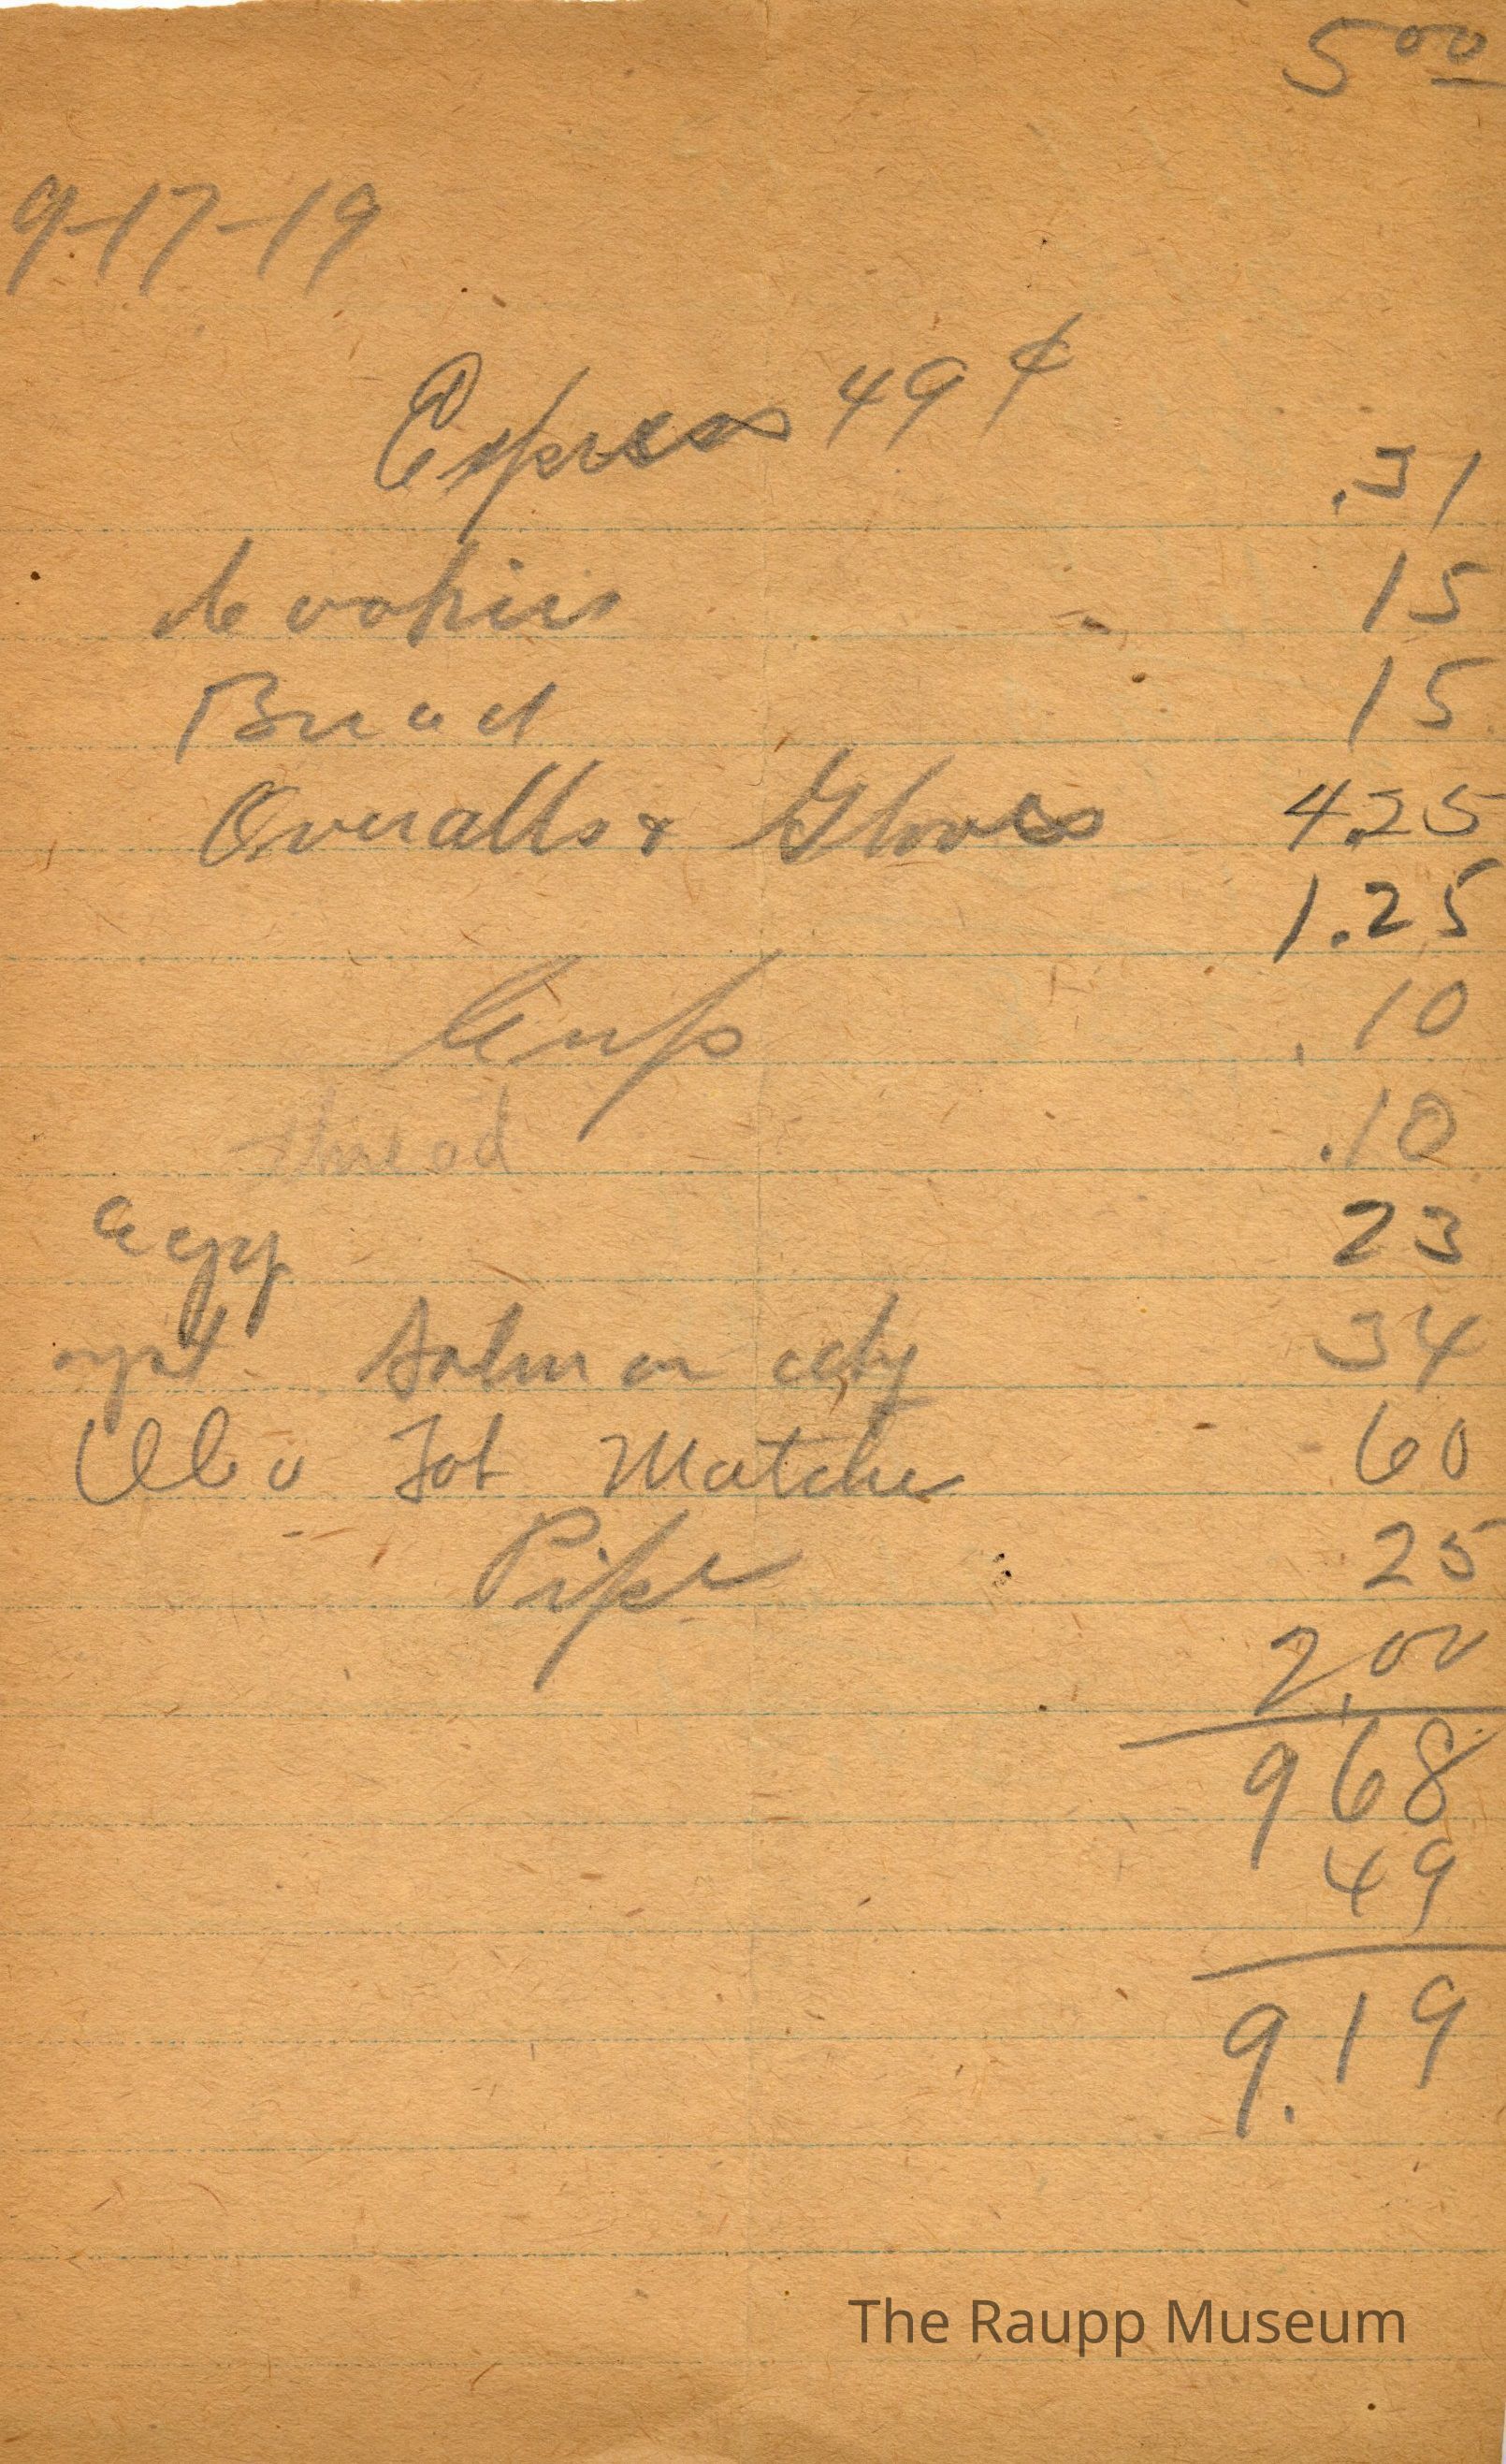 5 00
9-17-19
Express 49 ¢
.31
Cookies 15
Bread 15
Overalls & Gloves 4.25
1.25
Cup .10
thread .10
23
Salmon 34
Tob Matche 60
Pipe 25
2,00
968
49
9.19
The Raupp Museum